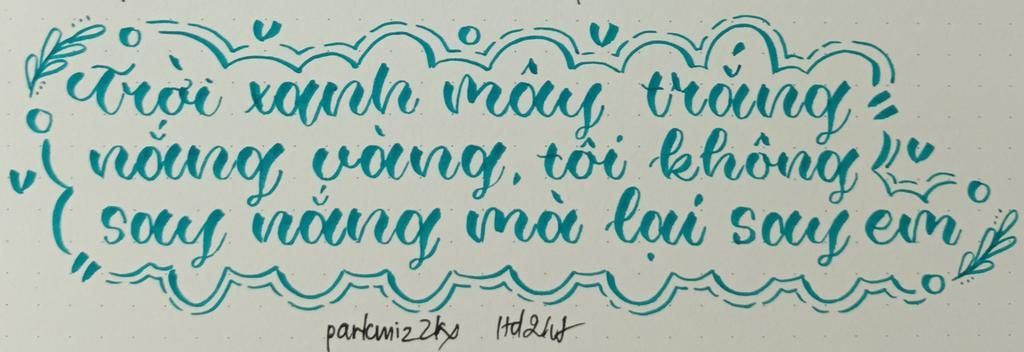 Trời xanh mây trắng
nắng vàng, tôi không
say nắng mà lại say em